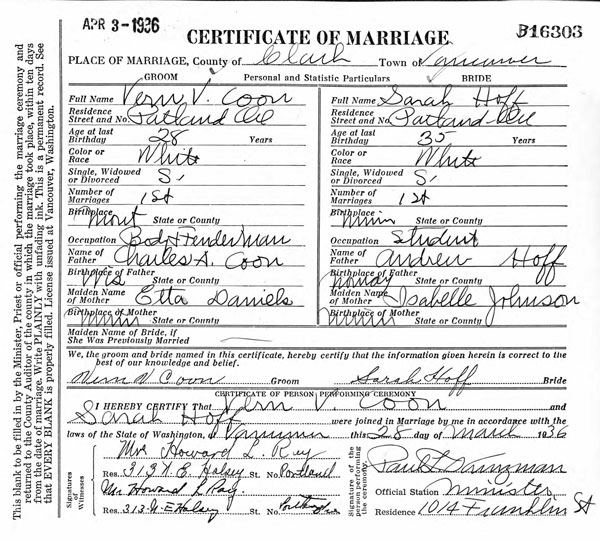 APR 3-1936
B16303
CERTIFICATE OF MARRIAGE
PLACE OF MARRIAGE, County of Clark Town of Vancouver
GROOM Personal and Statistic Particulars BRIDE
Full Name Vern V. Coon Full Name Sarah Hoff
Residence Street and No. Portland Ore Residence Street and No. Portland Ore
Age at last Birthday 28 Years Age at last Birthday 35 Years
Color or Race White Color or Race White
Single, Widowed or Divorced S. Single, Widowed or Divorced S.
Number of Marriages 1st Number of Marriages 1st
Birthplace Mont State or County Birthplace Minn State or County
Occupation Body & Fender man Occupation Student
Name of Father Charles A. Coon Name of Father Andrew Hoff
Birthplace of Father Wis State or County Birthplace of Father Norway State or County
Maiden Name of Mother Etta Daniels Maiden Name of Mother Isabelle Johnson
Birthplace of Mother Minn State or County Birthplace of Mother Minn State or County
Maiden Name of Bride, if She Was Previously Married
We, the groom and bride named in this certificate, hereby certify that the information given herein is correct to the
best of our knowledge and belief.
Vern V Coon Groom Sarah Hoff Bride
CERTIFICATE OF PERSON PERFORMING CEREMONY
I HEREBY CERTIFY That Vern V. Coon and
Sarah Hoff were joined in Marriage by me in accordance with the
laws of the State of Washington, at Vancouver this 28 day of March 1936
Signatures of Witnesses
Mrs Howard L. Ray
Res. 313 N.E. Halsey St. No. Portland
Mr Howard L Ray
Res. 313 N.E Halsey St. No. Portland
Signature of person performing the ceremony
Paul
Official Station Minister
Residence 1014 Franklin St
This blank to be filled in by the Minister, Priest or official performing the marriage ceremony and
returned to the County Auditor of the county in which the marriage took place, within ten days
from the date of marriage. Write PLAINLY with unfading ink. This is a permanent record. See
that EVERY BLANK is properly filled. License issued at Vancouver, Washington.